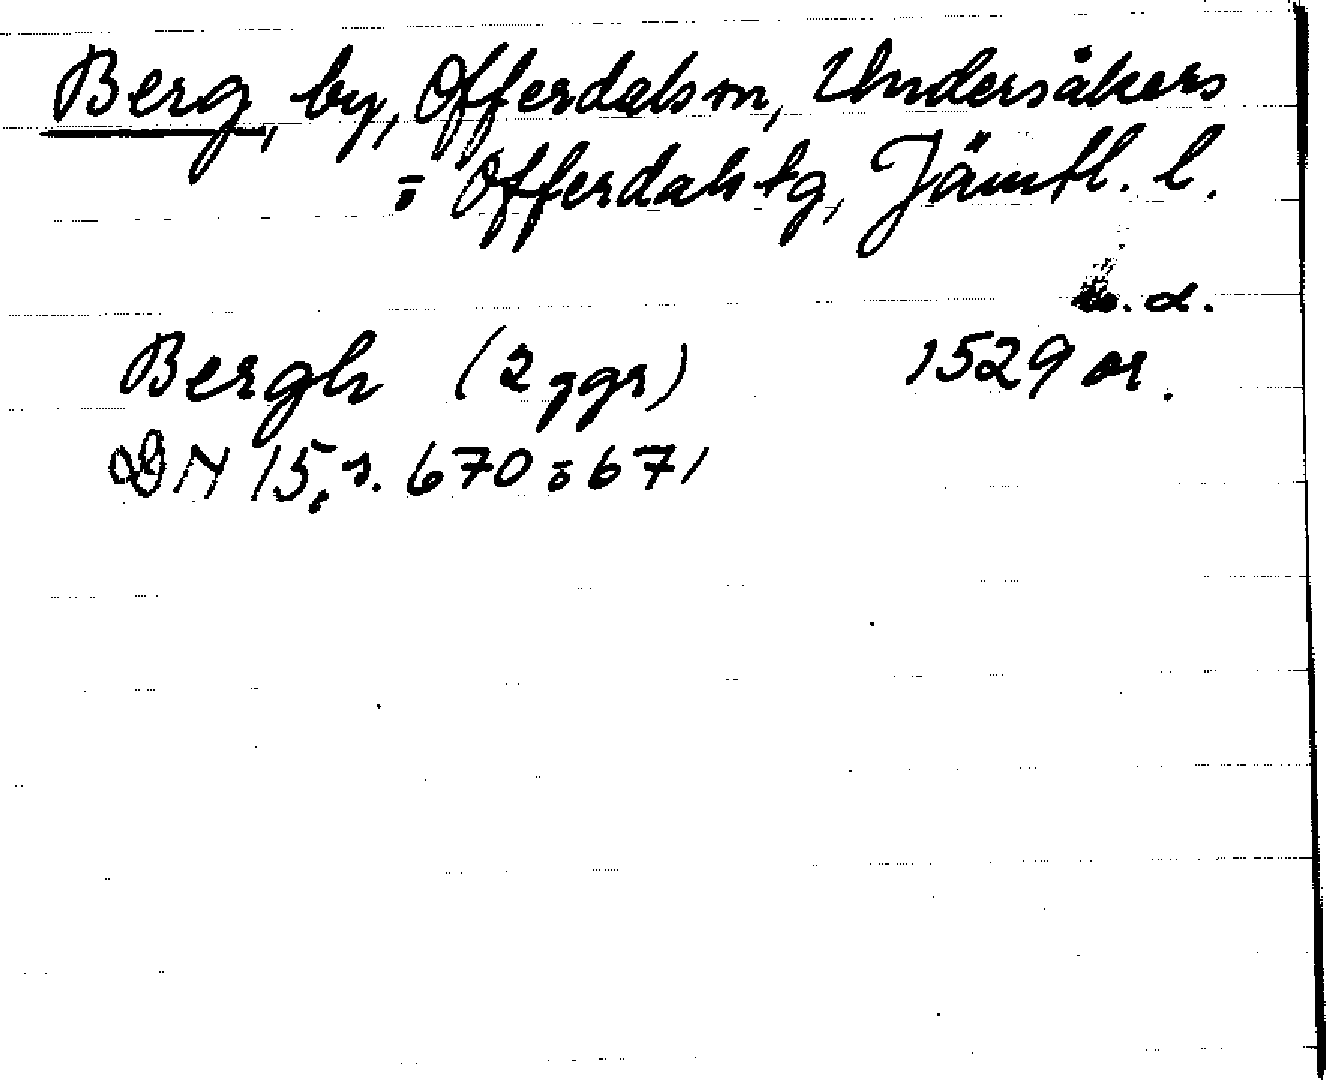 Berg, by, Offerdals sn, Undersåkers
o Offerdals tg, Jämtl. l.
u. d.
Bergh (2 ggr) 1529 or.
DN 15, s. 670 o 671